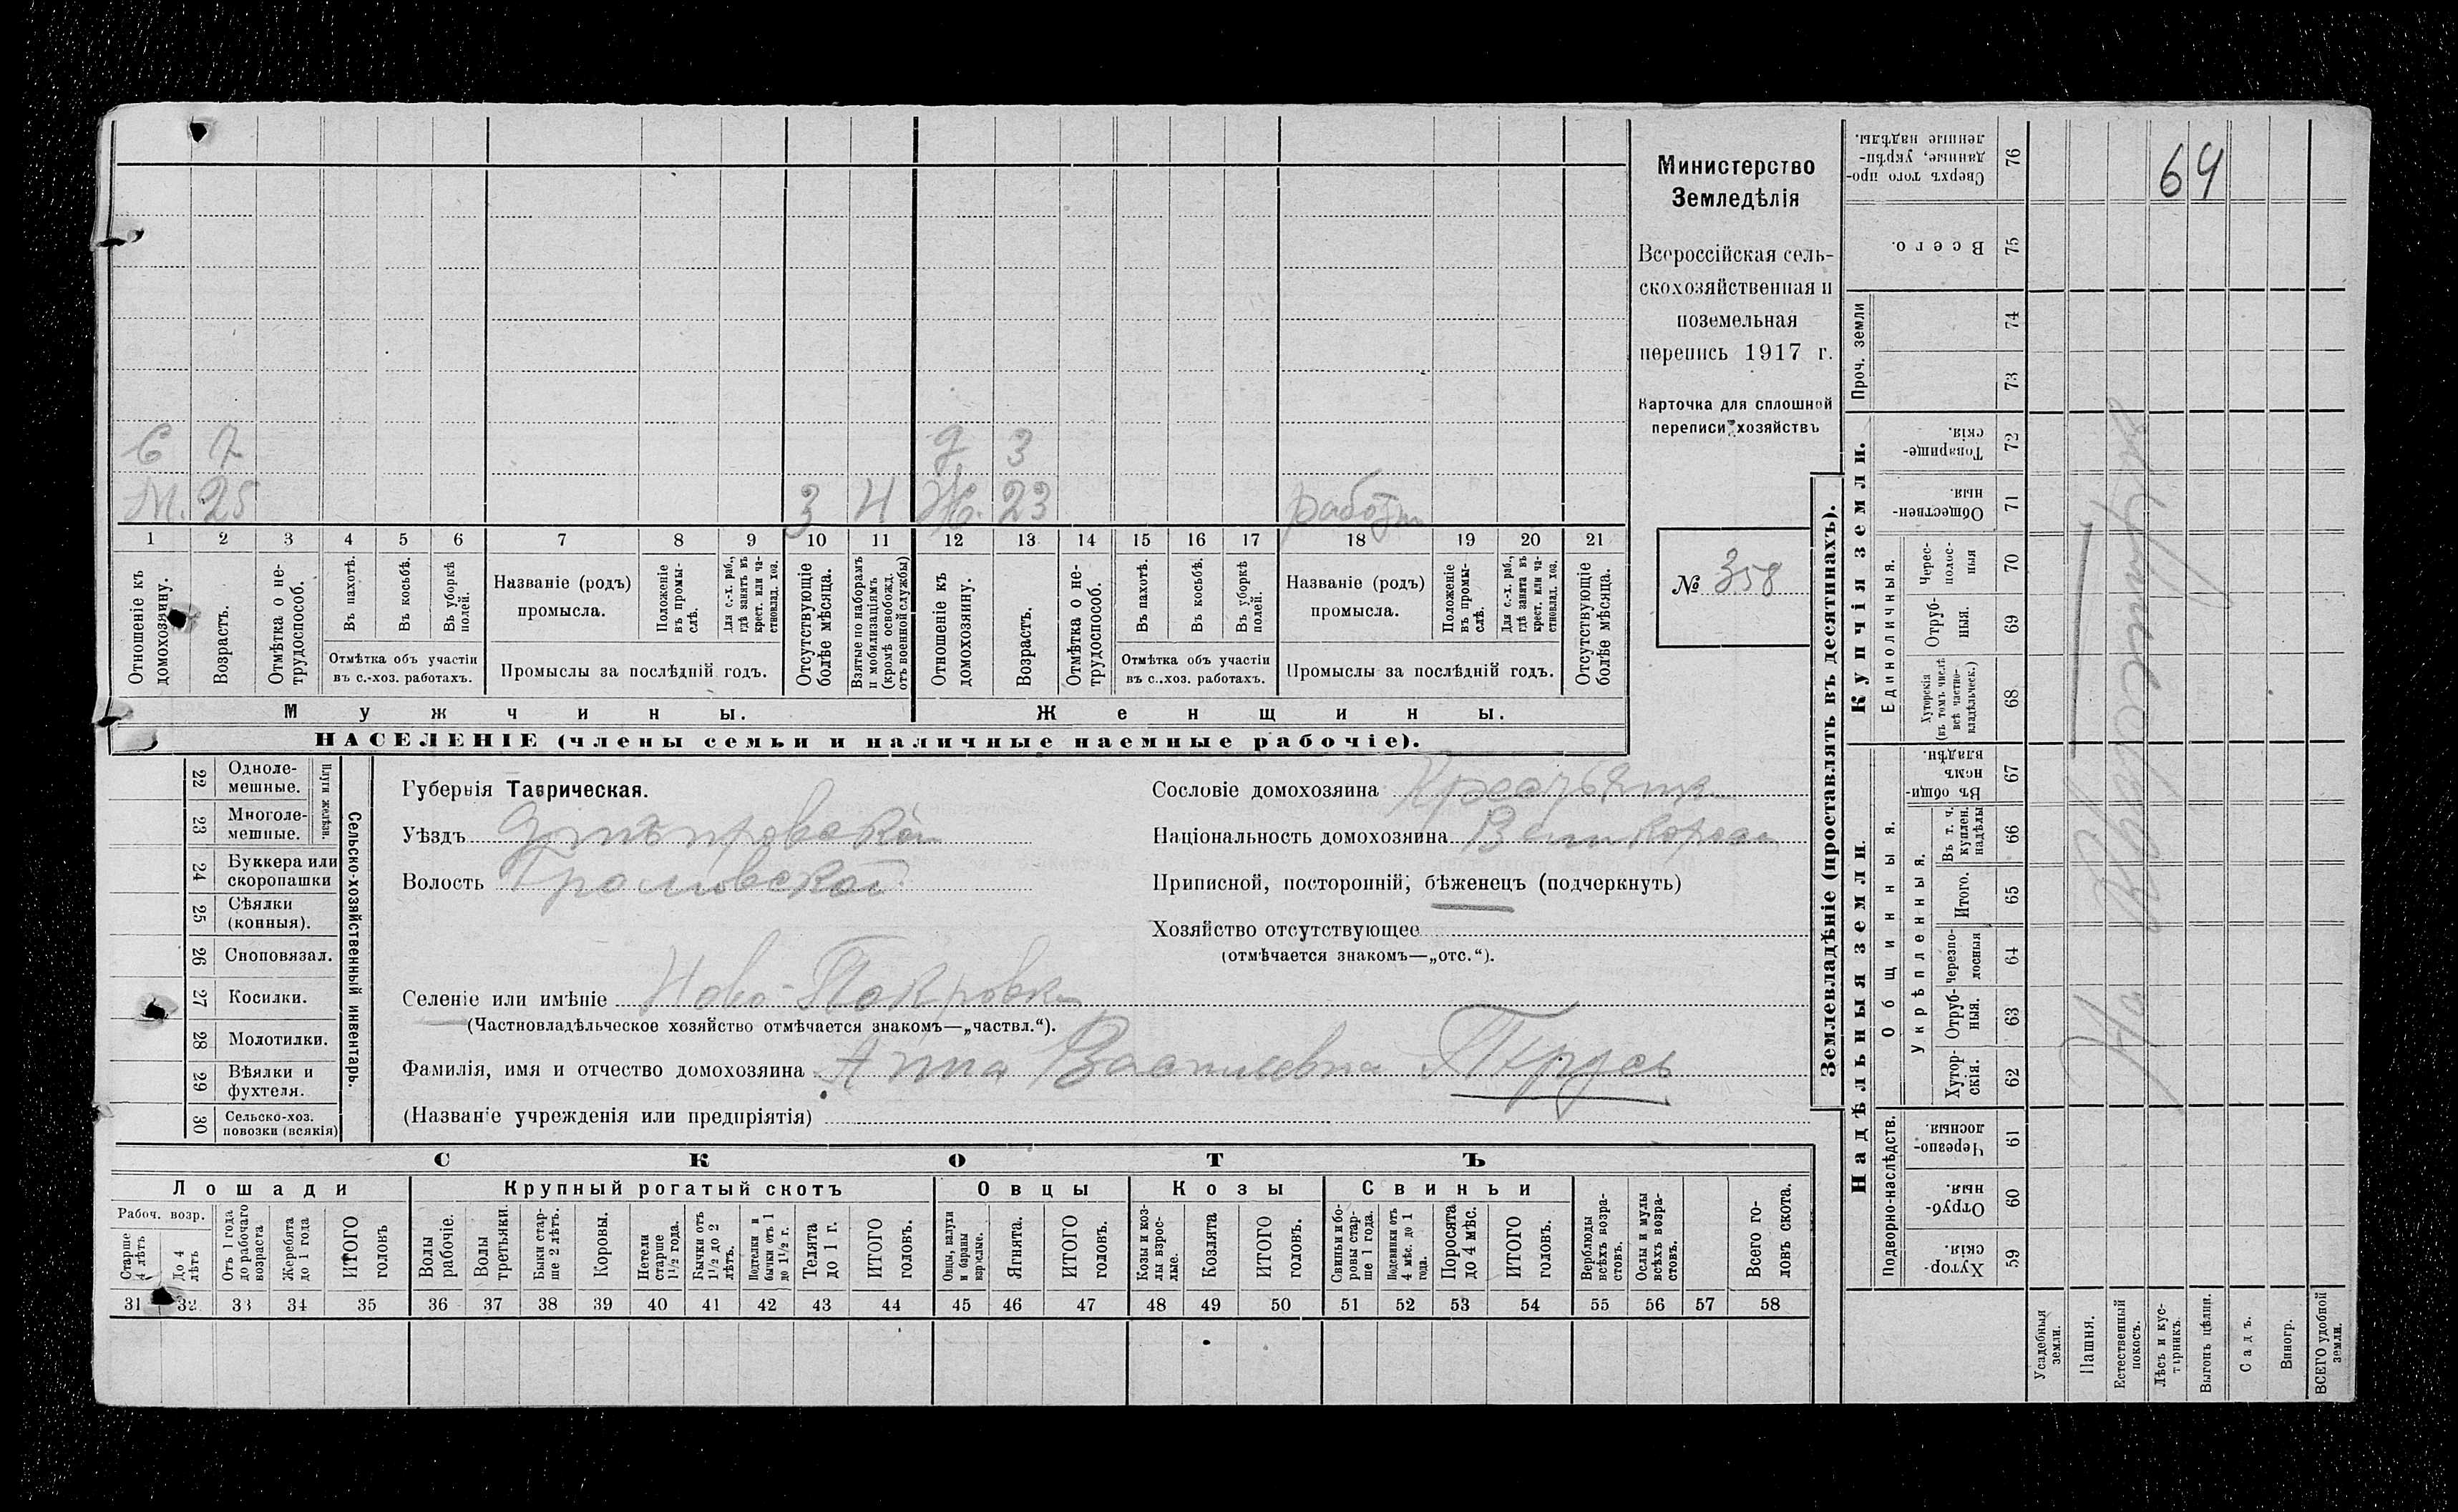 Министерство
Земледѣлія
Всероссійская сель-
скохозяйственная и
поземельная
перепись 1917 г.
Карточка для сплошной
переписи хозяйствъ
№ 358
64
С 7 3
М. 25 3 Ж. 23
1 2 3 4 5 6 7 8 9 10 11 12 13 14 15 16 17 18 19 20 21
Отношеніе къ домохозяину.
Возрастъ.
Отмѣтка о не-трудоспособ.
Въ пахотѣ.
Въ косьбѣ.
Въ уборкѣ полей.
Отмѣтка объ участіи
въ с.-хоз. работахъ.
Названіе (родъ)
промысла.
Положеніе въ промы-слѣ.
Для с.-х. раб., гдѣ занятъ въ крест. или ча-стновлад. хоз.
Промыслы за послѣдній годъ.
Отсутствующіе болѣе мѣсяца.
Взятые по наборамъ и мобилизаціямъ (кромѣ освобожд. отъ военной службы)
Отношеніе къ домохозяину.
Возрастъ.
Отмѣтка о не-трудоспособ.
Въ пахотѣ.
Въ косьбѣ.
Въ уборкѣ полей.
Отмѣтка объ участіи
въ с..хоз. работахъ.
Названіе (родъ)
промысла.
Положеніе въ промы-слѣ.
Для с.-х. раб., гдѣ занята въ крест. или ча-стновлад. хоз.
Промыслы за послѣдній годъ.
Отсутствующіе болѣе мѣсяца.
Мужчины. Женщины.
НАСЕЛЕНІЕ (члены семьи и наличные наемные рабочіе).
Сельско-хозяйственный инвентарь.
Плуги желѣзн.
22 Одноле-
мешные.
23 Многоле-
мешные.
24 Буккера или
скоропашки
25 Сѣялки
(конныя).
26 Сноповязал.
27 Косилки.
28 Молотилки.
29 Вѣялки и
фухтеля.
30 Сельско-хоз.
повозки (всякія)
Губернія Таврическая.
Уѣздъ Днѣпровскій
Волость Громовской
Селеніе или имѣніе Ново-Покровка
(Частновладѣльческое хозяйство отмѣчается знакомъ—„частвл.“).
Фамилія, имя и отчество домохозяина Анна Васильевна Прусь
(Названіе учрежденія или предпріятія)
Сословіе домохозяина Крестьянка
Національность домохозяина Великоросс
Приписной, посторонній, бѣженецъ (подчеркнуть)
Хозяйство отсутствующее
(отмѣчается знакомъ—„отс.“).
СКОТЪ
Лошади Крупный рогатый скотъ Овцы Козы Свиньи
Рабоч. возр.
Старше 4 лѣтъ
До 4 лѣтъ
Отъ 1 года до рабочаго возраста
Жеребята до 1 года
ИТОГО головъ
Волы рабочіе.
Волы третьяки.
Быки стар-ше 2 лѣтъ.
Коровы.
Нетели старше 1½ года.
Бычки отъ 1½ до 2 лѣтъ.
Подтелки и бычки отъ 1 до 1½ г.
Телята до 1 г.
ИТОГО головъ.
Овцы, валухи и бараны взрослые.
Ягнята.
ИТОГО головъ.
Козы и коз-лы взрос-лые.
Козлята
ИТОГО головъ.
Свиньи и бо-ровы стар-ше 1 года.
Подсвинки отъ 4 мѣс. до 1 года.
Поросята до 4 мѣс.
ИТОГО головъ.
Верблюды всѣхъ возра-стовъ.
Ослы и мулы всѣхъ возра-стовъ.
Всего го-ловъ скота.
31 32 33 34 35 36 37 38 39 40 41 42 43 44 45 46 47 48 49 50 51 52 53 54 55 56 57 58
Землевладѣніе (проставлять въ десятинахъ).
Надѣльныя земли.
Купчія земли.
Проч. земли
Подворно-наслѣдств.
Общинныя.
Укрѣпленныя.
Единоличныя.
Сверхъ того про-данные, укрѣп-ленные надѣлы. 76
Всего. 75
74
73
Товарище-скія. 72
Обществен-ныя. 71
Черес-полос-ныя 70
Отруб-ныя. 69
Хуторскія (въ томъ числѣ всѣ частно-владѣльческ.) 68
Въ общи-номъ владѣн. 67
Въ т. ч. куплен. надѣлы 66
Итого. 65
черезпо-лосныя 64
Отруб-ныя. 63
Хутор-скія. 62
Черезпо-лосныя. 61
Отруб-ныя. 60
Хутор-скія. 59
Усадебныя земли.
Пашня.
Естественный покосъ.
Лѣсъ и кус-тарникъ.
Выгонъ цѣлин.
Садъ.
Виногр.
ВСЕГО удобной земли.